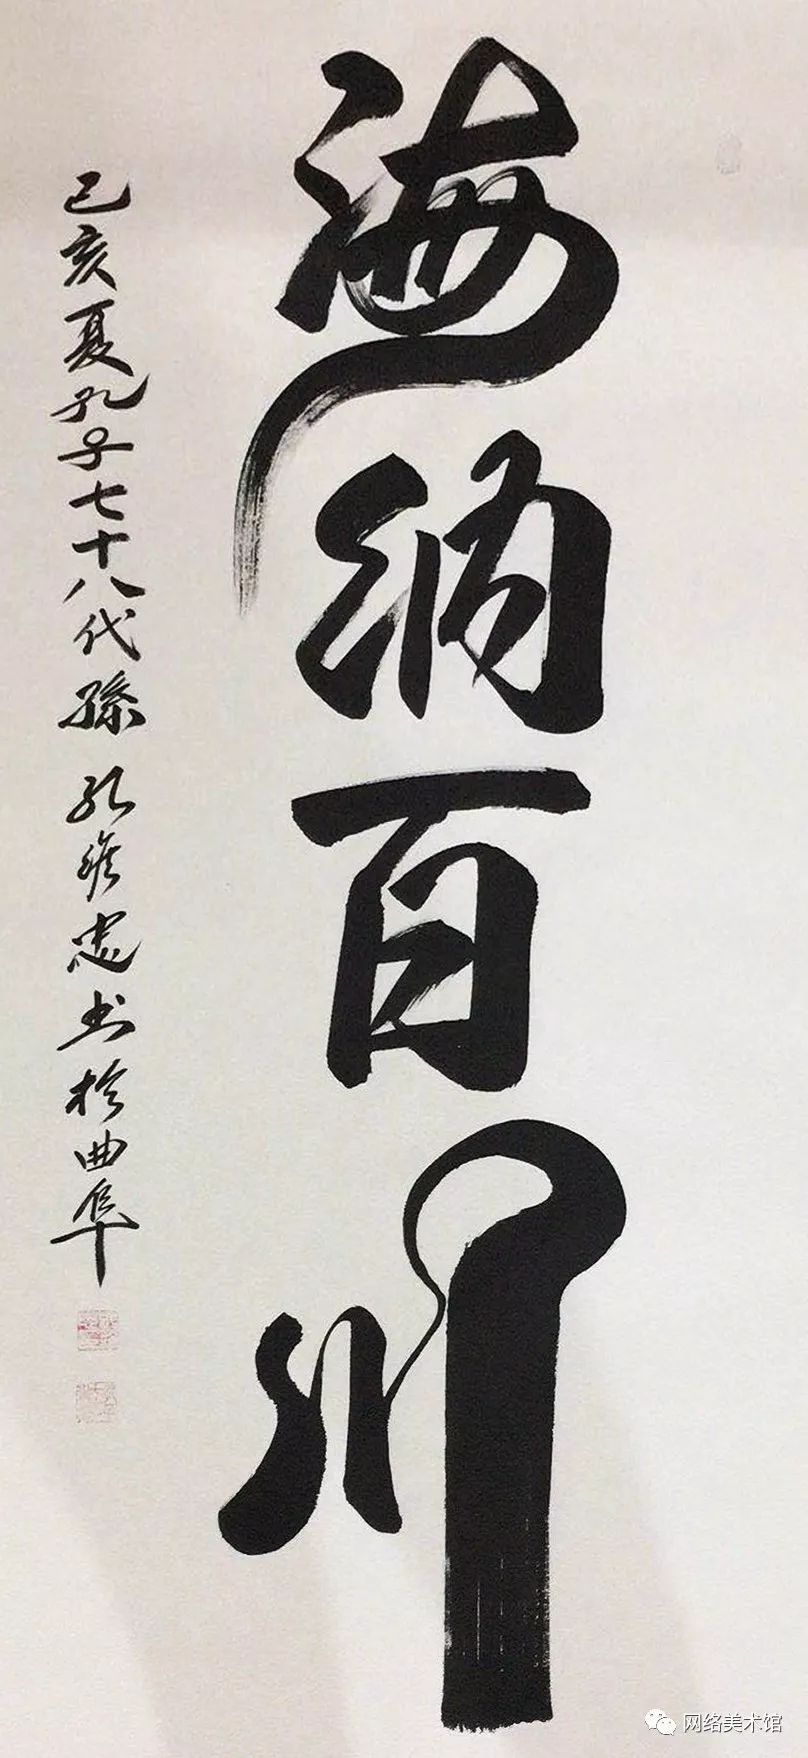 海纳百川
己亥夏孔子七十八代孙孔维忠书於曲阜
网络美术馆